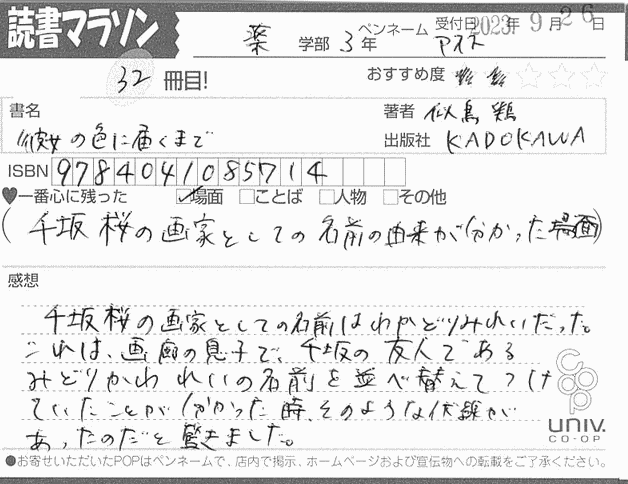 読書マラソン
薬 学部 3年 ペンネーム アイス 受付日 2023年9月26日
32 冊目! おすすめ度 ★★☆☆☆
書名 著者 似鳥 鶏
彼女の色に届くまで 出版社 KADOKAWA
ISBN 9784041085714
♥一番心に残った ☑場面 □ことば □人物 □その他
(千坂 桜の画家としての名前の由来が分かった場面)
感想
千坂 桜の画家としての名前はわかどりみれいだった。
これは、画廊の息子で、千坂の友人である
みどりかわ れいの名前を並べ替えてつけ
ていたことが分かった時、そのような伏線が
あったのだと驚きました。
co-op
univ.
CO-OP
●お寄せいただいたPOPはペンネームで、店内で掲示、ホームページおよび宣伝物への転載をご了承ください。